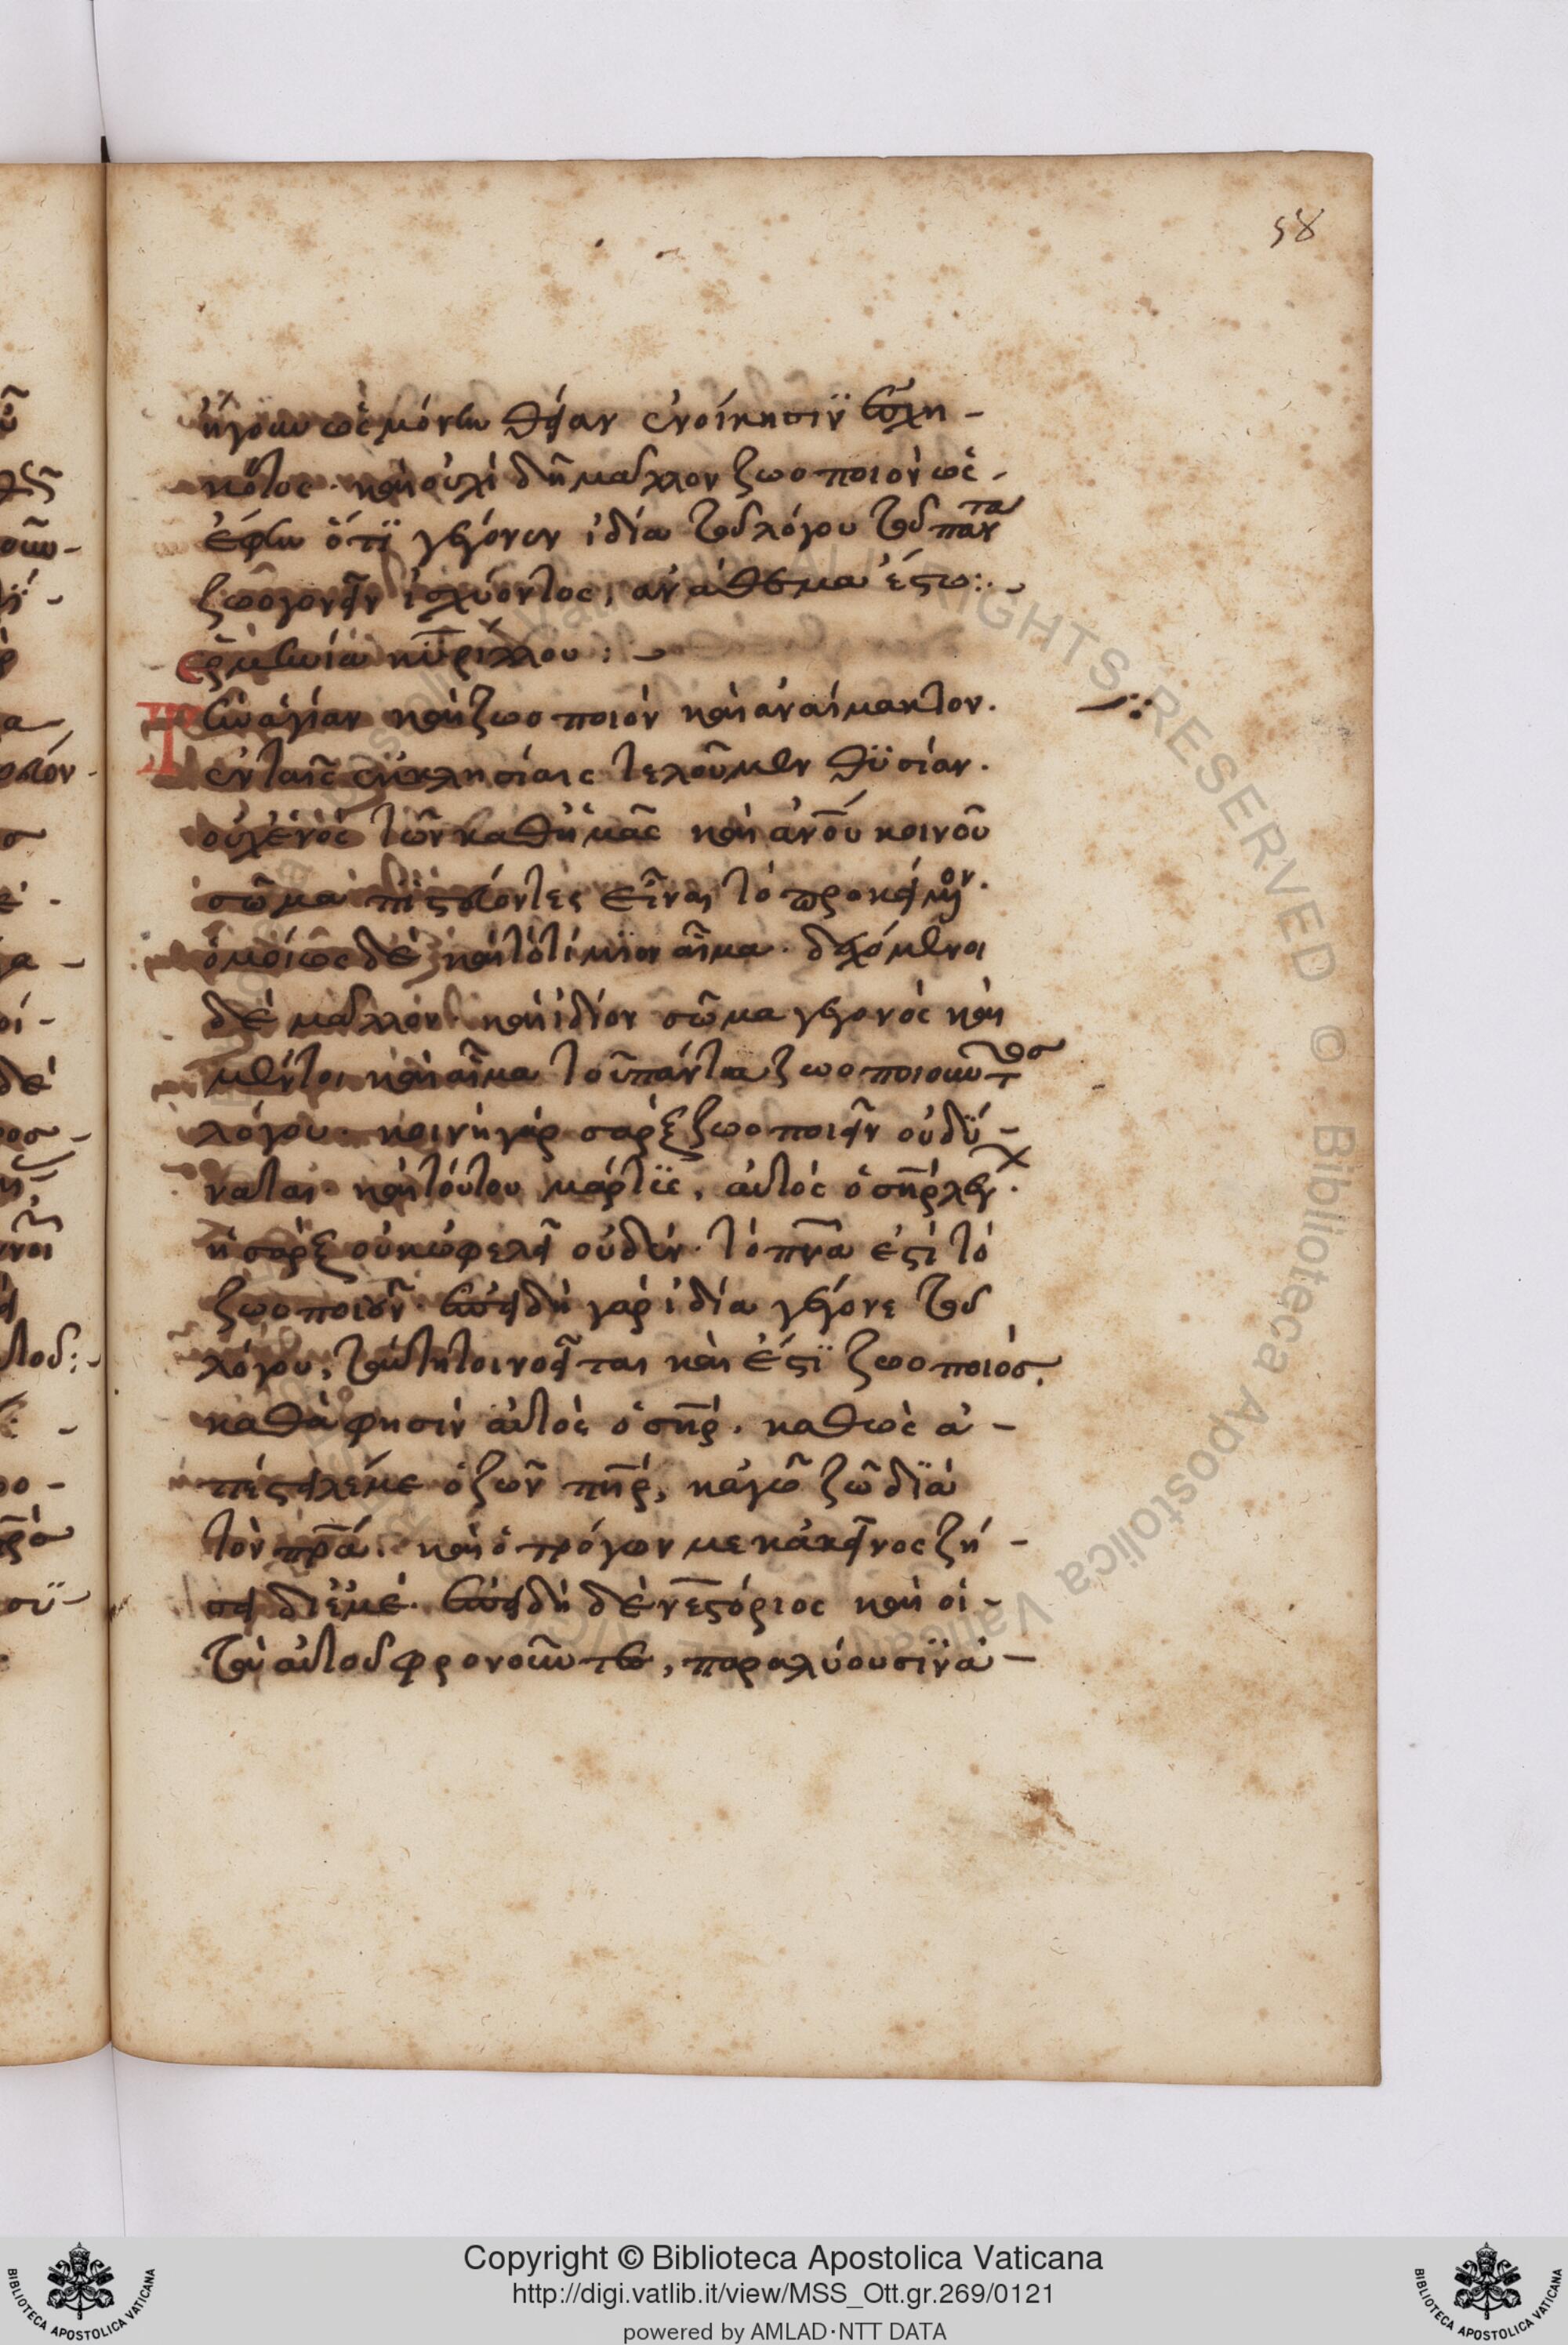 58
ἤγουν ὡς μόνην θείαν ἐνοίκησιν ἐσχη-
κότος· καὶ οὐχὶ δὴ μᾶλλον ζωοποιὸν ὡς
ἔφην ὅτι γέγονεν ἰδία τοῦ λόγου τοῦ πάντα
ζωογονεῖν ἰσχύοντος, ἀνάθεμα ἔστω:.
ἑρμηνεία κυρίλλου:
Τὴν ἁγίαν καὶ ζωοποιὸν καὶ ἀναίμακτον.
ἐν ταῖς ἐκκλησίαις τελοῦμεν θυσίαν.
οὐχ ἑνὸς τῶν καθ' ἡμᾶς καὶ ἀνου κοινοῦ
σῶμα πιστεύοντες εἶναι τὸ προκείμενον.
ὁμοίως δὲ καὶ τὸ τίμιον αἷμα· δεχόμενοι
δὲ μᾶλλον· καὶ ἴδιον σῶμα γεγονὸς καὶ
μέντοι καὶ αἷμα τοῦ πάντα ζωοποιοῦντος
λόγου· κοινὴ γὰρ σὰρξ ζωοποιεῖν οὐ δύ-
ναται· καὶ τούτου μάρτυς, αὐτὸς ὁ σηρ λέγων·
ἡ σὰρξ οὐκ ὠφελεῖ οὐδέν· τὸ πνα ἐστὶ τὸ
ζωοποιοῦν· ἐπειδὴ γὰρ ἰδία γέγονε τοῦ
λόγου, ταύτῃ τοι νοεῖται καὶ ἔστι ζωοποιός.
καθά φησιν αὐτὸς ὁ σηρ. καθὼς ἀ-
πέστειλέ με ὁ ζῶν πηρ, κἀγὼ ζῶ διὰ
τὸν πρα. καὶ ὁ τρώγων με κἀκεῖνος ζή-
σει δι' ἐμέ. ἐπειδὴ δὲ νεστόριος καὶ οἱ
τὰ αὐτοῦ φρονοῦντες, παραλύουσιν ἀ-
Copyright © Biblioteca Apostolica Vaticana
http://digi.vatlib.it/view/MSS_Ott.gr.269/0121
powered by AMLAD·NTT DATA
BIBLIOTECA APOSTOLICA VATICANA
BIBLIOTECA APOSTOLICA VATICANA